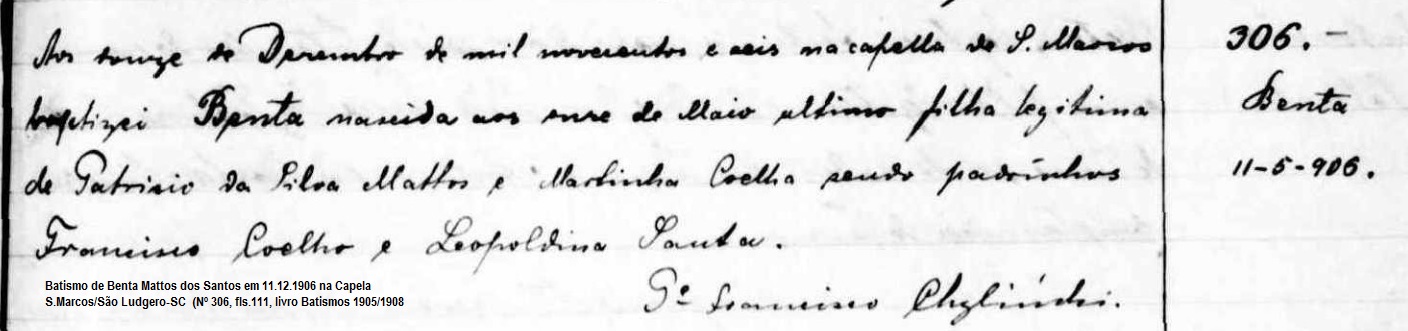 Aos  de Dezembro de mil novecentos e seis na capella de S. Marcos
baptizei Benta nascida aos onze de Maio ultimo filha legitima
de Patricio da Silva Mattos e Martinha Coelha sendo padrinhos
Francisco Coelho e Leopoldina Santa.
Pe Francisco Chylinski.
306.-
Benta
11-5-906.
Batismo de Benta Mattos dos Santos em 11.12.1906 na Capela
S.Marcos/São Ludgero-SC (Nº 306, fls.111, livro Batismos 1905/1908